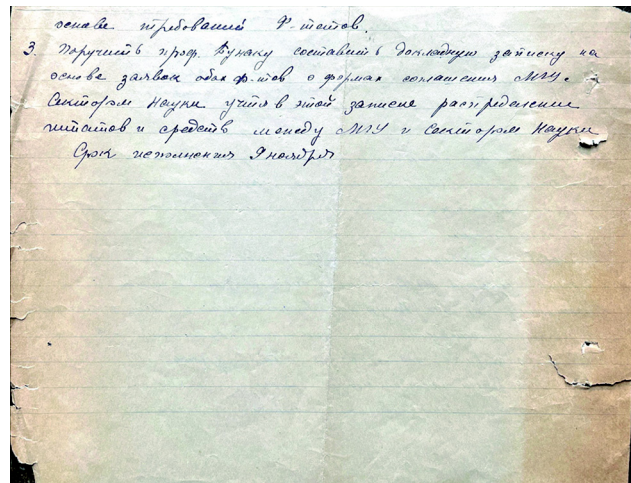 основе требований Ф-тетов.
3. Поручить проф. Бунаку составить докладную записку на
основе заявок обоих ф-тов о формах соглашения МГУ с
Сектором Науки учтя в этой записке распределение
штатов и средств между МГУ и Сектором Науки
Срок исполнения 9 ноября